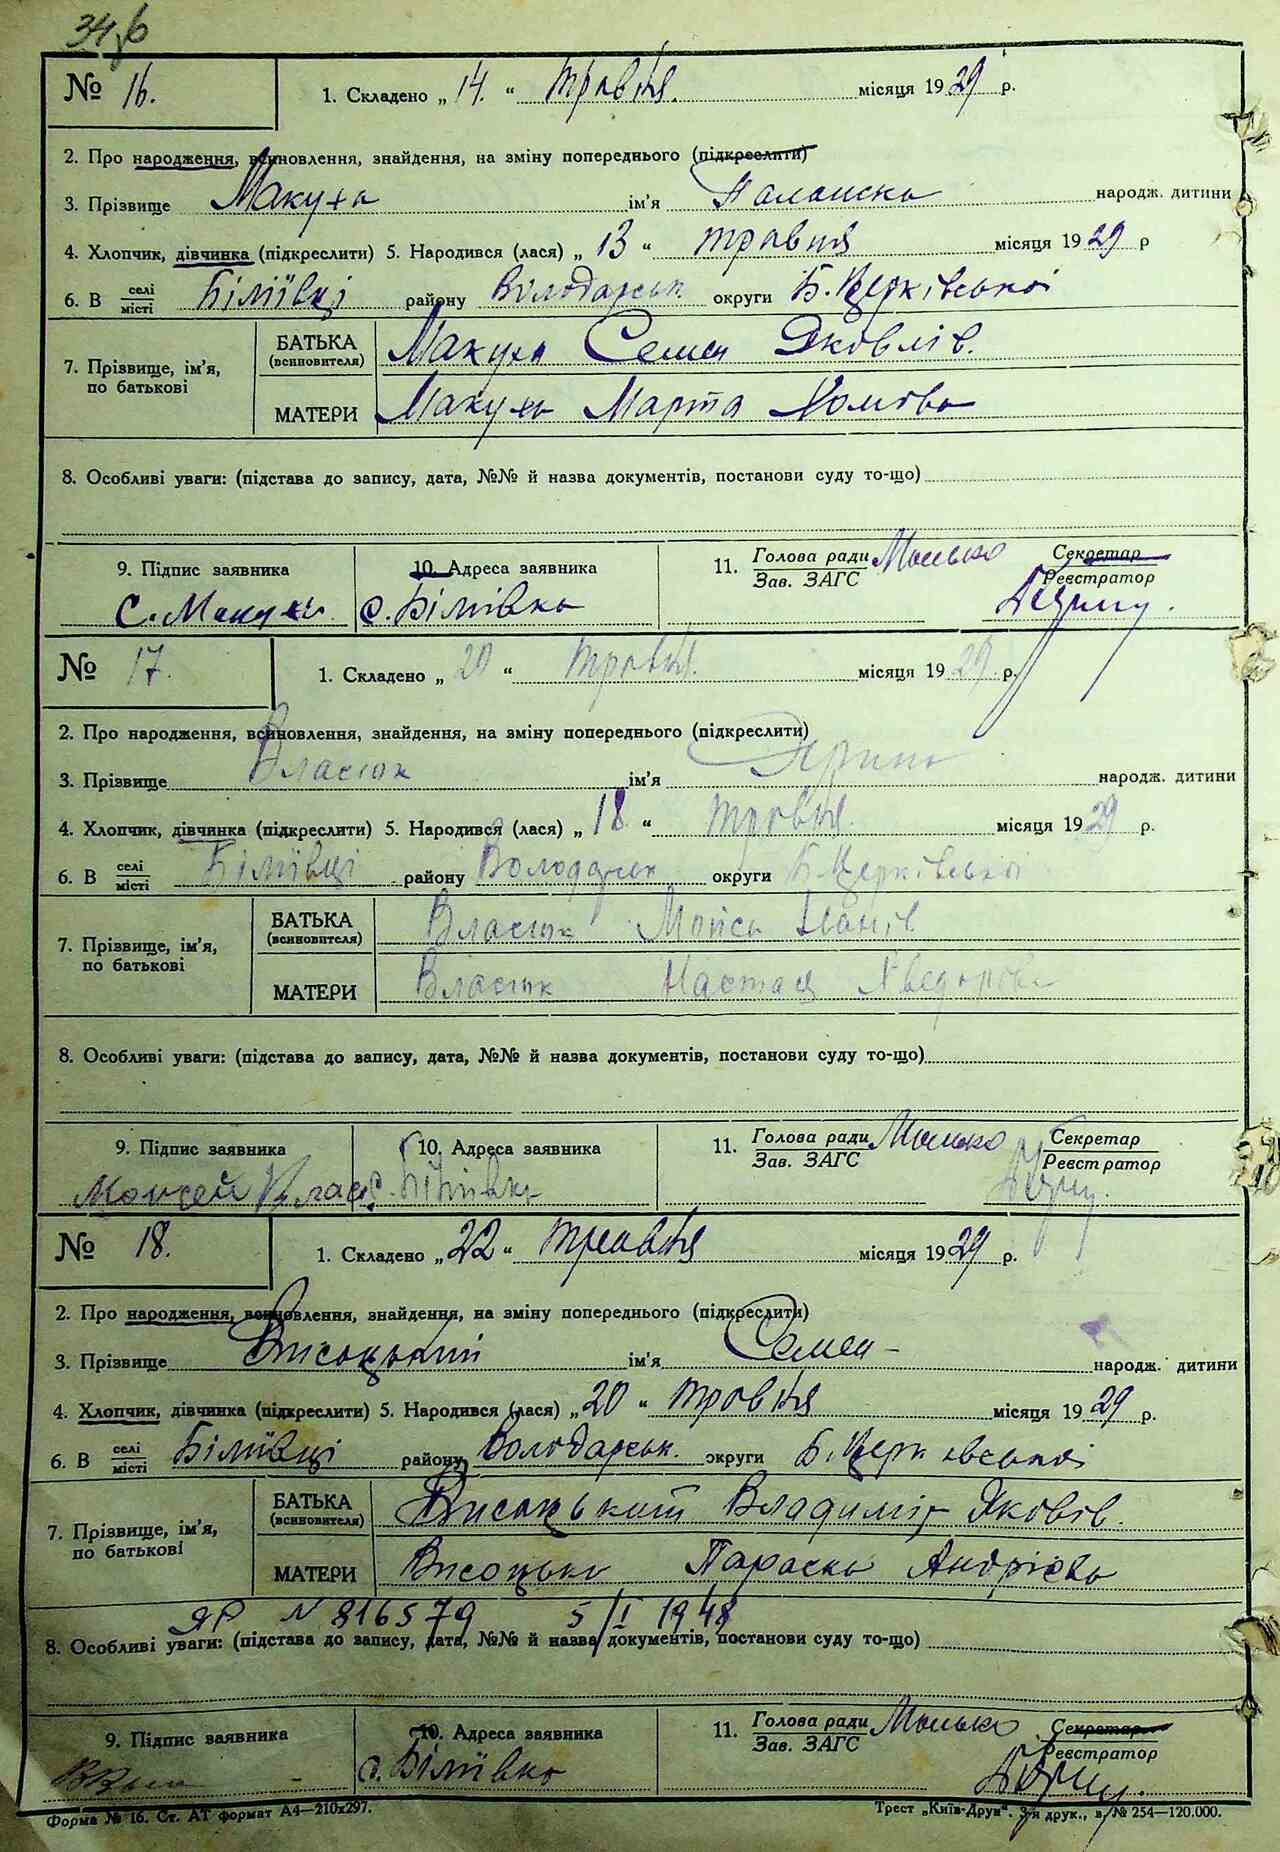 № 16. 1. Складено „14." травня місяця 1929 р.
2. Про народження, всиновлення, знайдення, на зміну попереднього (підкреслити)
3. Прізвище Макуха ім'я народж. дитини
4. Хлопчик, дівчинка (підкреслити) 5. Народився (лася) „13" травня місяця 1929 р
6. В селі місті Біліївці району Володарськ. округи Б. Церківської
7. Прізвище, ім'я, по батькові
БАТЬКА (всиновителя) Макуха Семен Яковлів.
МАТЕРИ Макуха Марта Хомова
8. Особливі уваги: (підстава до запису, дата, №№ й назва документів, постанови суду то-що)
9. Підпис заявника 10. Адреса заявника 11. Голова ради Зав. ЗАГС Секретар Реєстратор
С. Макуха с. Біліївка
№ 17. 1. Складено „20" травня. місяця 1929 р.
2. Про народження, всиновлення, знайдення, на зміну попереднього (підкреслити)
3. Прізвище Власюк ім'я Ярина народж. дитини
4. Хлопчик, дівчинка (підкреслити) 5. Народився (лася) „18" травня місяця 1929 р.
6. В селі місті Біліївці району Володарськ округи Б. Церківської
7. Прізвище, ім'я, по батькові
БАТЬКА (всиновителя) Власюк Мойсь Іванів
МАТЕРИ Власюк Настася
8. Особливі уваги: (підстава до запису, дата, №№ й назва документів, постанови суду то-що)
9. Підпис заявника 10. Адреса заявника 11. Голова ради Зав. ЗАГС Секретар Реєстратор
Моисей Влас с. Біліївка
№ 18. 1. Складено „22" травня місяця 1929 р.
2. Про народження, всиновлення, знайдення, на зміну попереднього (підкреслити)
3. Прізвище Висоцький ім'я Семен народж. дитини
4. Хлопчик, дівчинка (підкреслити) 5. Народився (лася) „20" травня місяця 1929 р.
6. В селі місті Біліївці району Володарськ. округи Б. Церківської
7. Прізвище, ім'я, по батькові
БАТЬКА (всиновителя) Висоцький Владимір Яковів.
МАТЕРИ Висоцька Параска Андрієва
ЯР N 816579 5/I 1948
8. Особливі уваги: (підстава до запису, дата, №№ й назва документів, постанови суду то-що)
9. Підпис заявника 10. Адреса заявника 11. Голова ради Зав. ЗАГС Секретар Реєстратор
с. Біліївка
Форма № 16. Ст. АТ формат А4—210x297. Трест „Київ-Друк". 3-я друк., в, № 254—120.000.